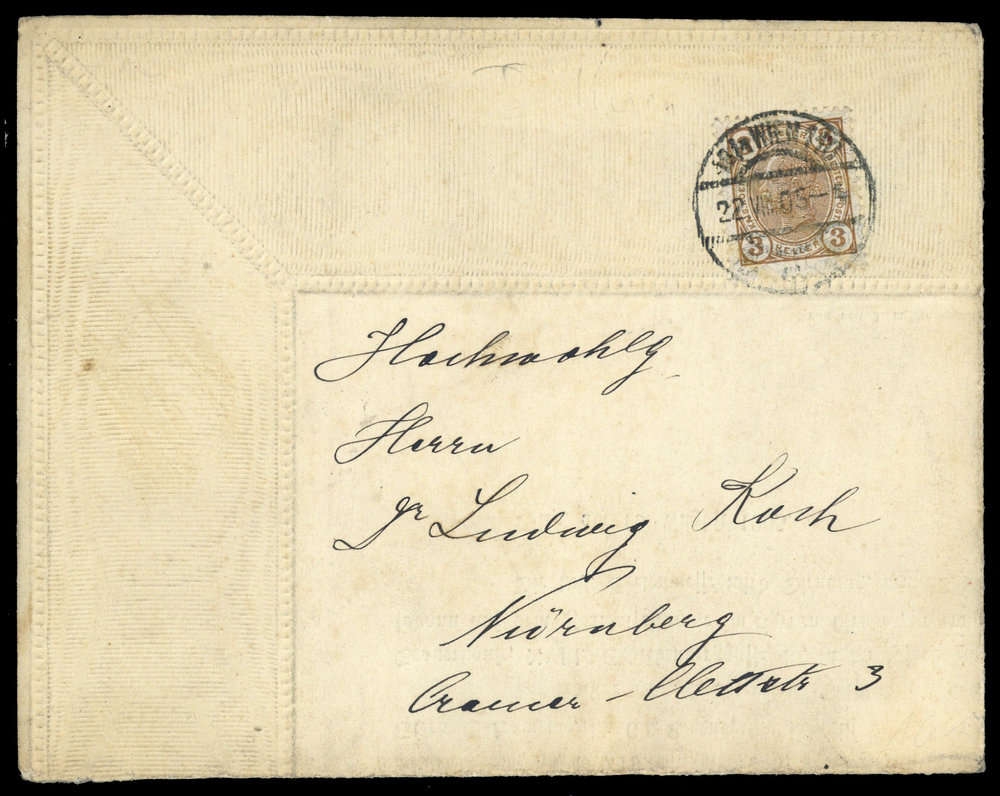 WIEN
22
3 3
HELLER
Hochwohlg
Herrn
Dr Ludwig Koch
Nürnberg
Cramer-Klettstr 3